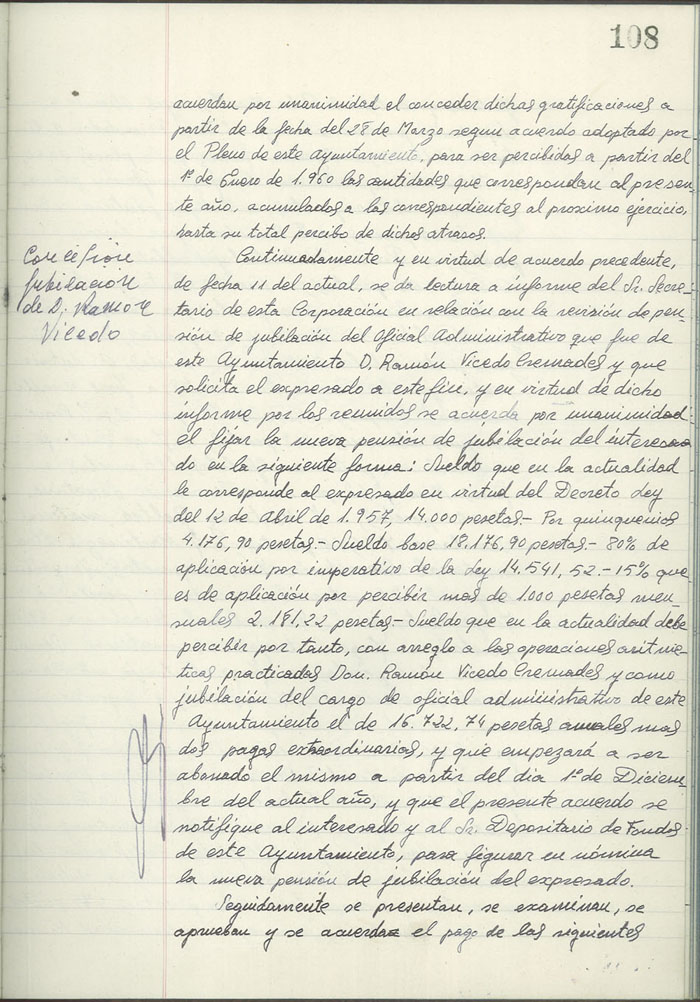 108
acuerdan por unanimidad el conceder dichas gratificaciones a
partir de la fecha del 28 de Marzo segun acuerdo adoptado por
el Pleno de este Ayuntamiento, para ser percibidas a partir del
1º de Enero de 1.960 las cantidades que correspondan al presen-
te año, acumulados a las correspondientes al proximo ejercicio,
hasta su total percibo de dichos atrasos.
Concesion
jubilación
de D. Ramon
Vicedo
Continuadamente y en virtud de acuerdo precedente,
de fecha 11 del actual, se da lectura a informe del Sr. Secre-
tario de esta Corporación en relación con la revisión de pen-
sión de jubilación del Oficial Administrativo que fue de
este Ayuntamiento D. Ramón Vicedo Cremades y que
solicita el expresado a este fin, y en virtud de dicho
informe por los reunidos se acuerda por unanimidad:
el fijar la nueva pensión de jubilación del interesa
do en la siguiente forma: Sueldo que en la actualidad
le corresponde al expresado en virtud del Decreto Ley
del 12 de Abril de 1.957, 14.000 pesetas.- Por quinquenios
4.176,90 pesetas.- Sueldo base 18.176,90 pesetas.- 80% de
aplicación por imperativo de la Ley 14.541,52.- 15% que
es de aplicación por percibir mas de 1.000 pesetas men-
suales 2.181,22 pesetas.- Sueldo que en la actualidad debe
percibir por tanto, con arreglo a las operaciones aritme-
ticas practicadas Don. Ramón Vicedo Cremades y como
jubilación del cargo de oficial administrativo de este
Ayuntamiento el de 16.722,74 pesetas anuales mas
dos pagas extraordinarias, y que empezará a ser
abonado el mismo a partir del dia 1º de Diciem-
bre del actual año, y que el presente acuerdo se
notifique al interesado y al Sr. Depositario de Fondos
de este Ayuntamiento, para figurar en nómina
la nueva pensión de jubilación del expresado.
Seguidamente se presentan, se examinan, se
aprueban y se acuerda el pago de las siguientes